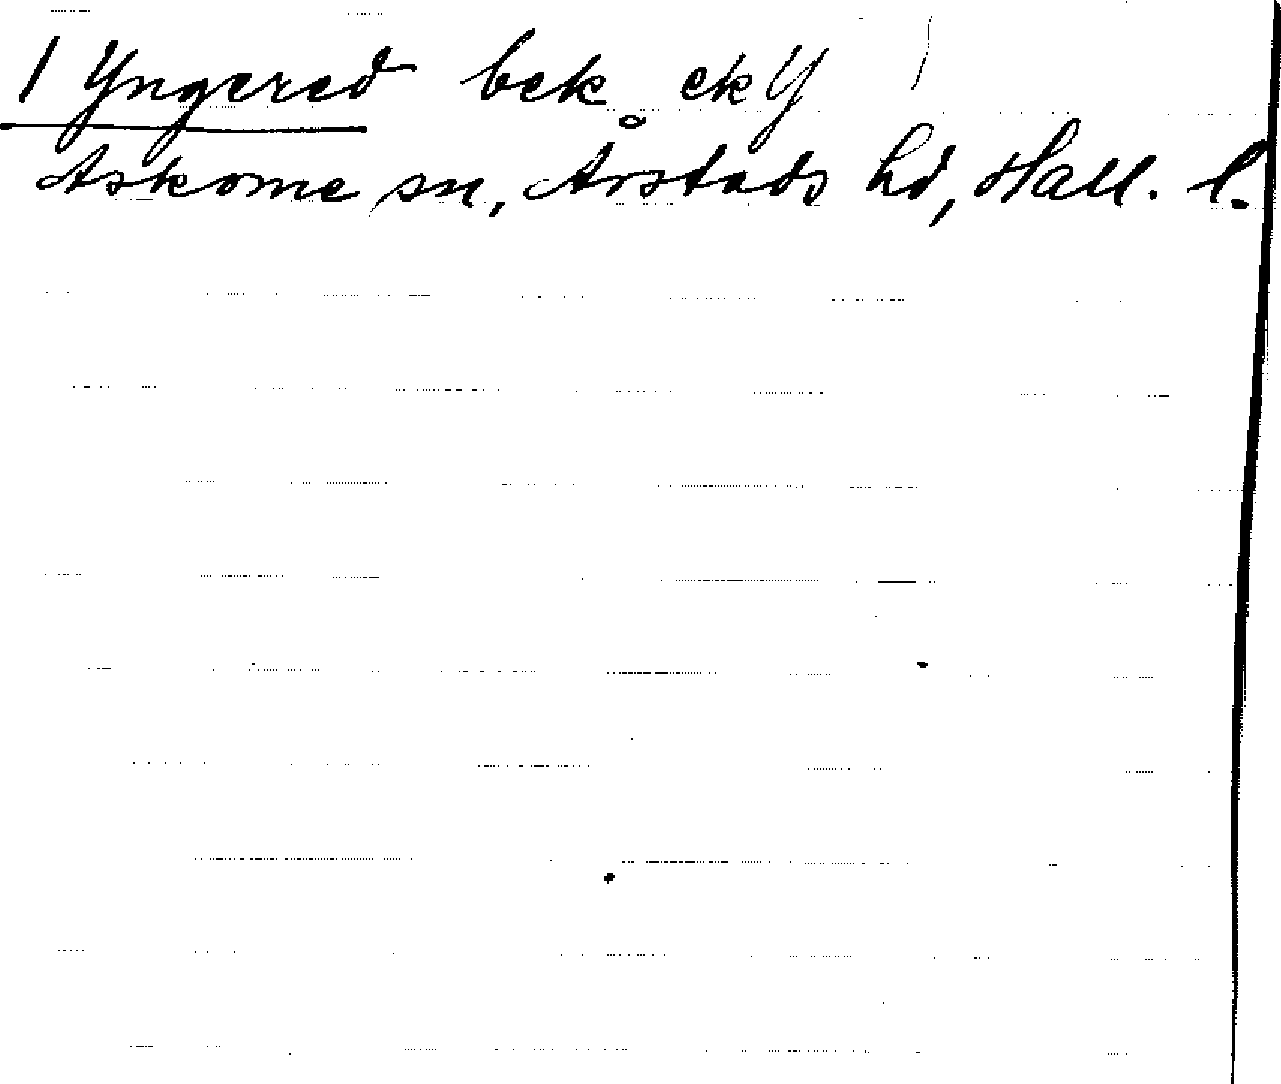 1 Yngered bek ek Y
Askome sn, Årstads hd, Hall. l.